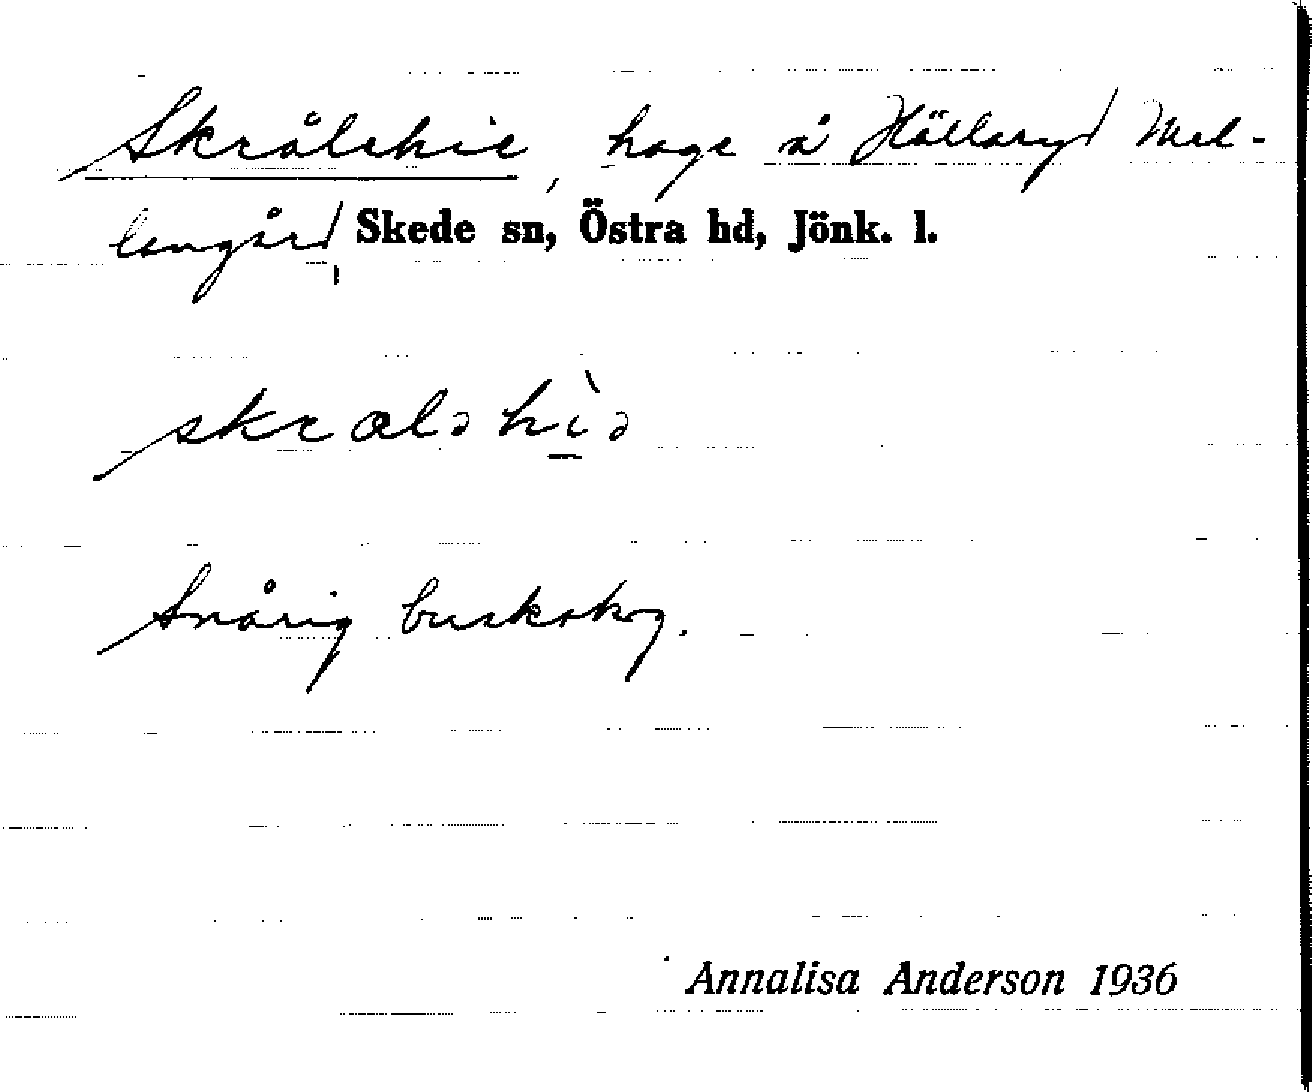 Skrålehie, hage å Hällaryd Mel-
langård, Skede sn, Östra hd, Jönk. l.
skrålə hìə
Snårig buskskog.
Annalisa Anderson 1936